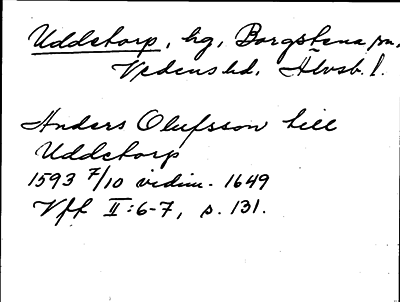 Uddetorp, hg, Borgstena sn,
Vedens hd, Älvsb. l.
Anders Olufsson till
Uddetorp
1593 7/10 vidim. 1649
Vff II:6-7, s. 131.